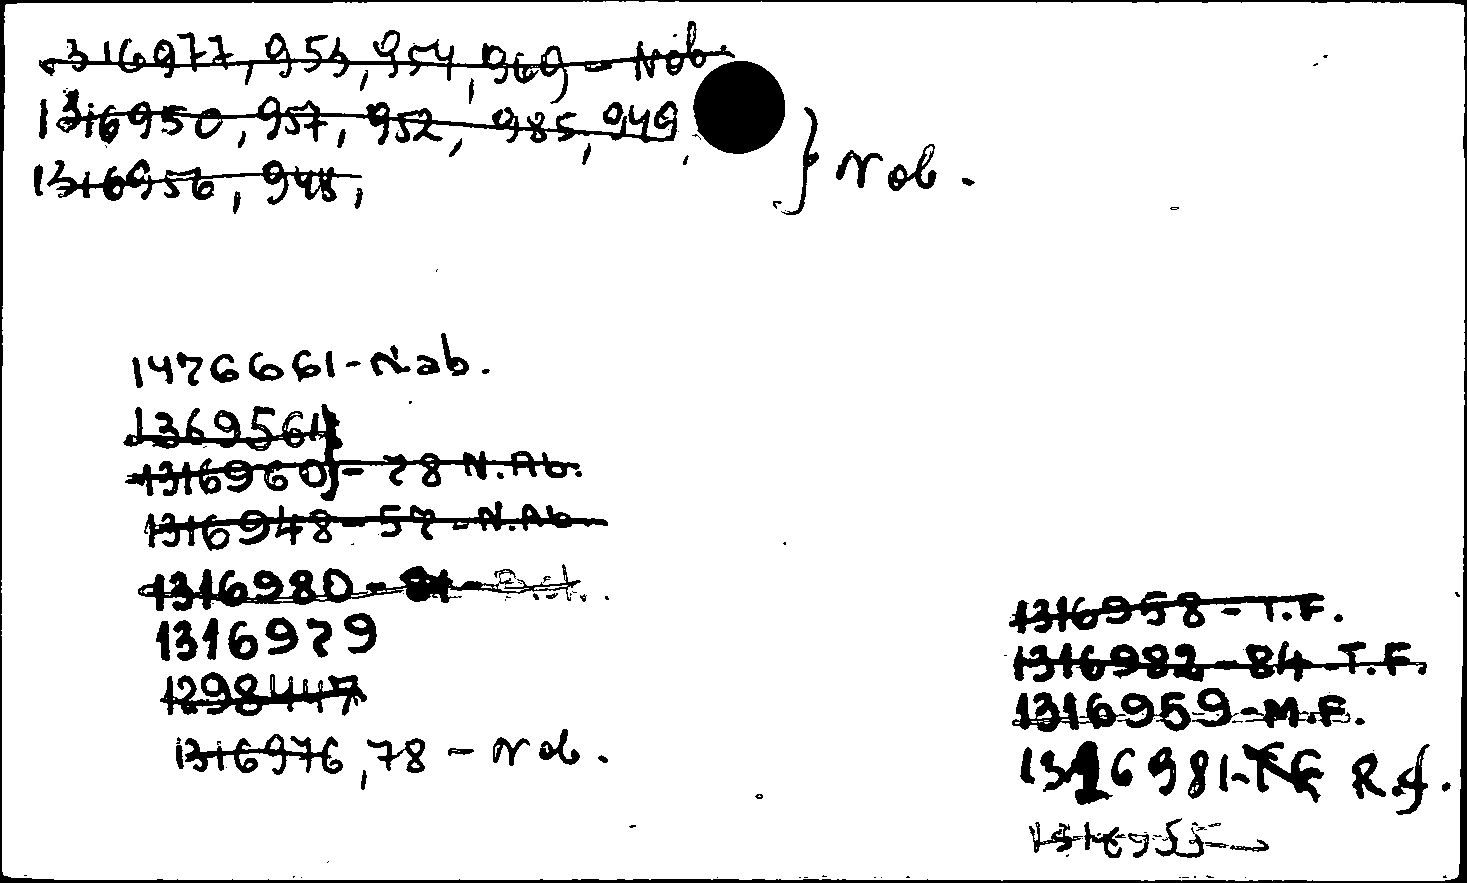 1316977, 953, 954, 969 - Nob.
1316950, 957, 952, 985, 949,
1316956, 948, } Nob.
1476661 - N.ab.
1369561
1316960 - 78 N.Ab.
1316948 - 57 - N.Ab
1316980 - 81 -
1316979
1298447
1316976, 78 - Nob.
1316958 - T.F.
1316982 - 84 - T.F.
1316959 - M.F.
1316981 - R.f.
1316955